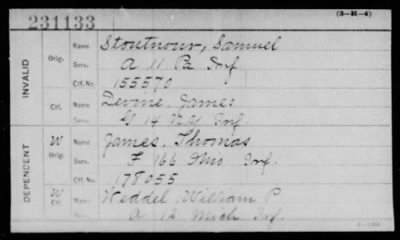 231133
(3-H-4)
INVALID
DEPENDENT
Orig. Name Stoutnour, Samuel
Serv. A 11 Pa Inf
Ctf. No. 155570
Ctf. Name Devine, James
Serv. 14 N.Y. Inf.
W Orig. Name James, Thomas
Serv. F 166 Ohio Inf.
Ctf. No. 178055
W Ctf. Name Weddel, William P.
Serv. A 12 Mich Inf.